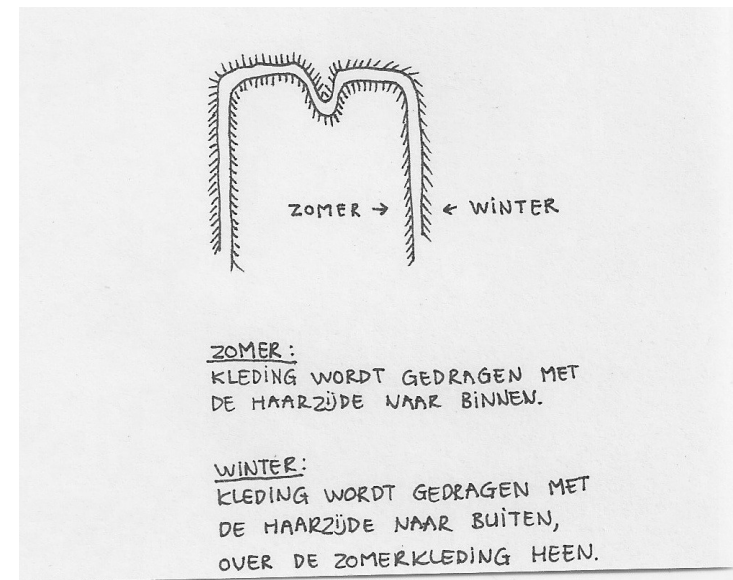 ZOMER → ← WINTER
ZOMER:
KLEDING WORDT GEDRAGEN MET
DE HAARZIJDE NAAR BINNEN.
WINTER:
KLEDING WORDT GEDRAGEN MET
DE HAARZIJDE NAAR BUITEN,
OVER DE ZOMERKLEDING HEEN.